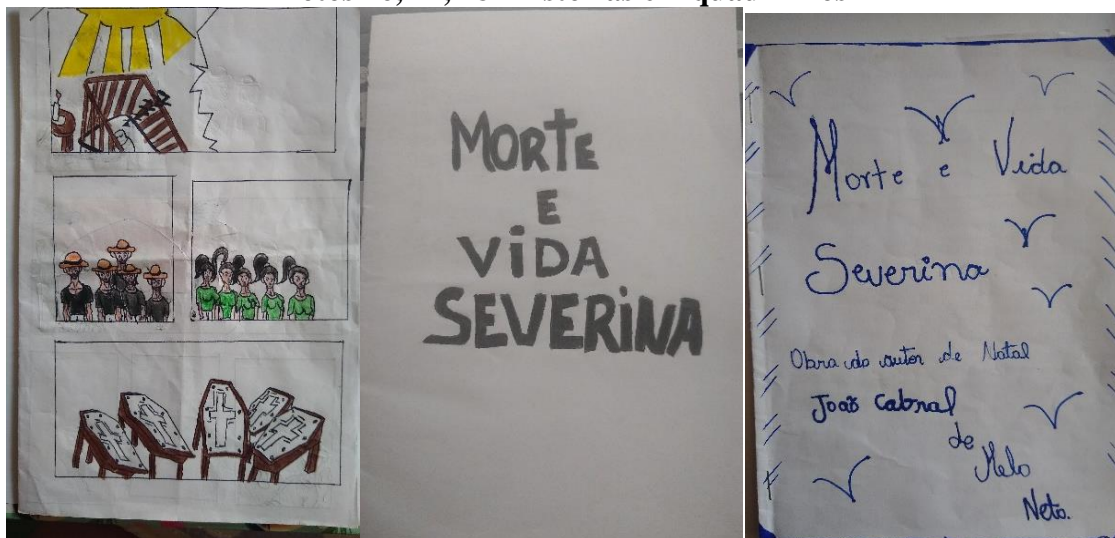 MORTE
E
VIDA
SEVERINA
Morte e Vida
Severina
Obra do autor de Natal
João Cabral
de
Melo
Neto.